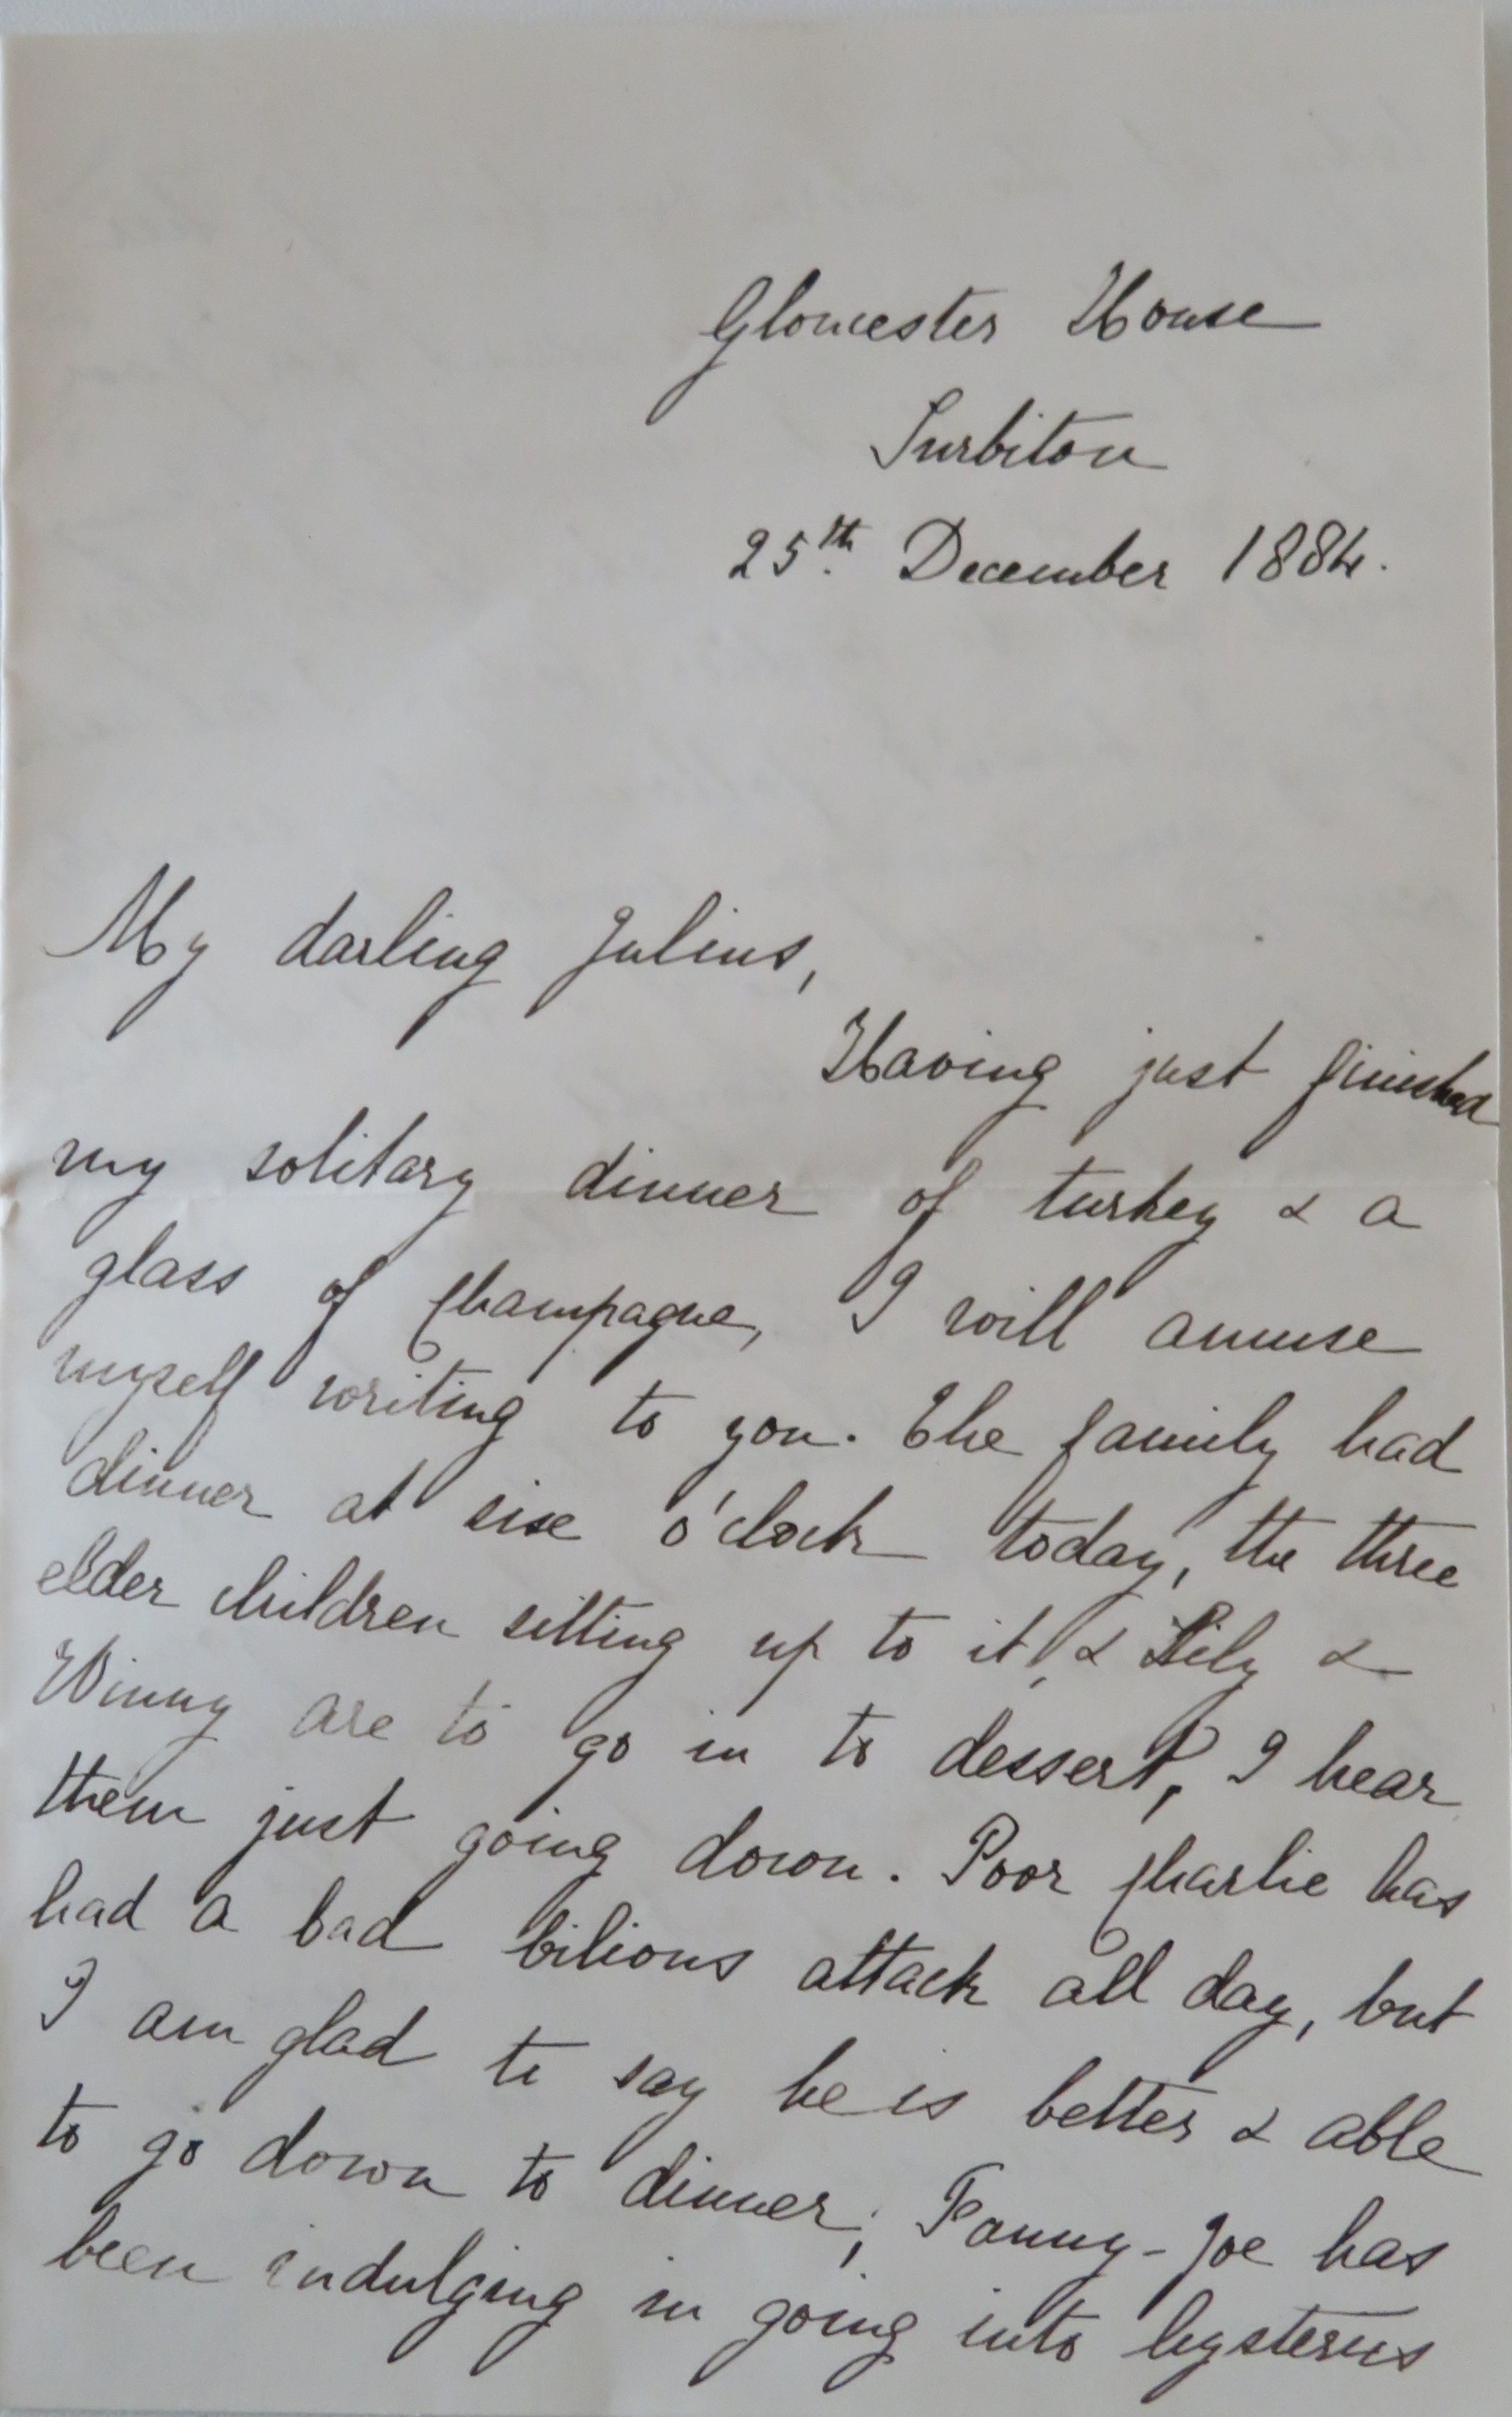 Gloucester House
Surbiton
25th. December 1884.
My darling Julius,
Having just finished
my solitary dinner of turkey & a
glass of Champagne, I will amuse
myself writing to you. The family had
dinner at six o'clock today, the three
elder children sitting up to it, & Lily &
Winny are to go in to dessert, I hear
them just going down. Poor Charlie has
had a bad bilious attack all day, but
I am glad to say he is better & able
to go down to dinner; Fanny-Joe has
been indulging in going into hysterics